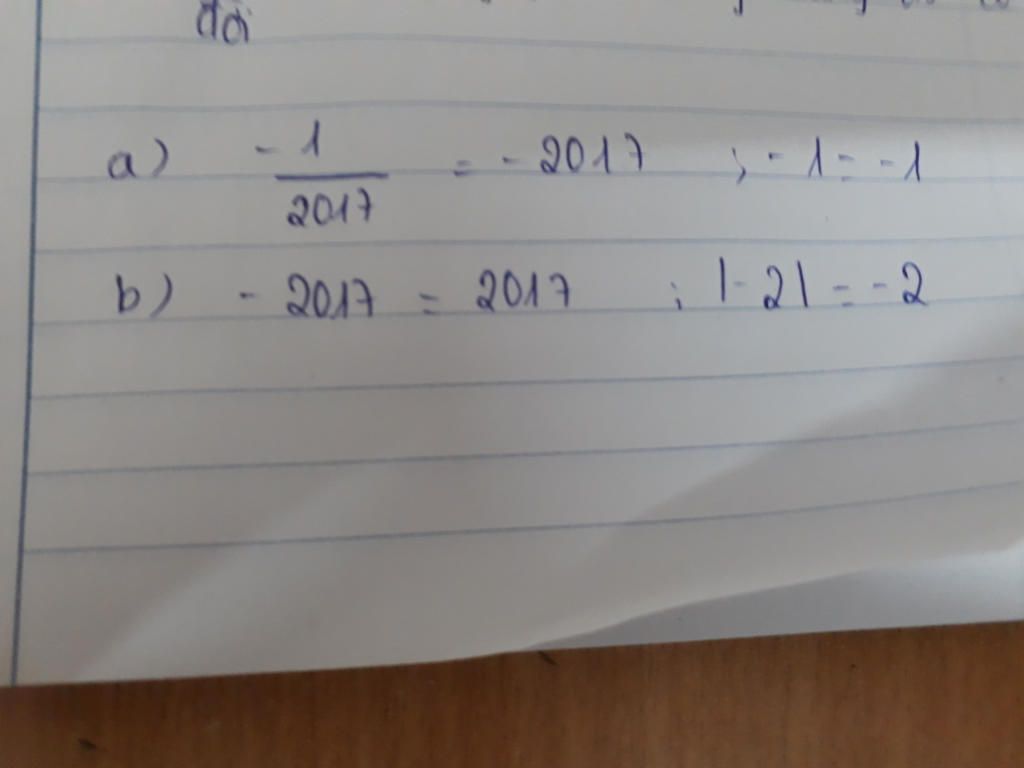 đối
a) -1/2017 = -2017 ; -1 = -1
b) -2017 = 2017 ; |-2| = -2